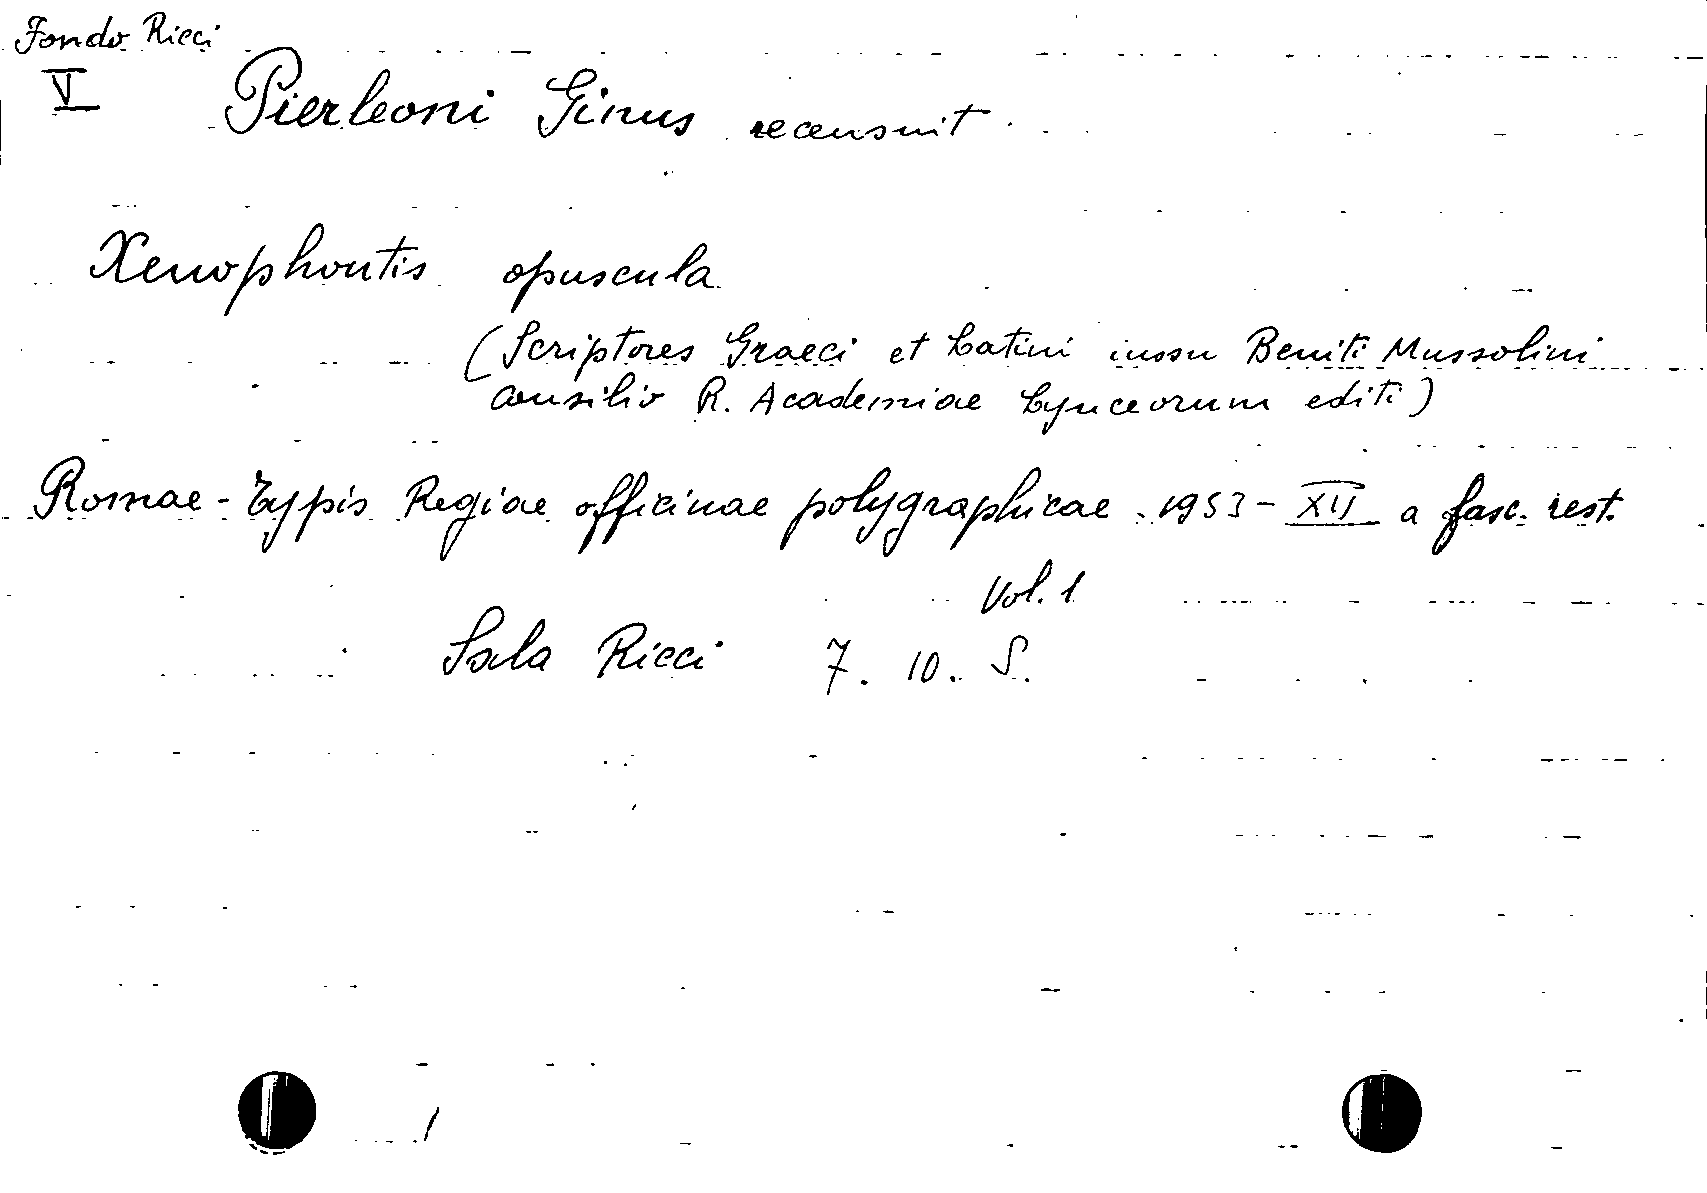 Fondo Ricci
V
Pierleoni Ginus recensuit
Xenophontis opuscula
(Scriptores Graeci et Latini iussu Beniti Mussolini
consilio R. Academiae Lynceorum editi)
Romae - Typis Regiae officinae polygraphicae 1953 - XII a fasc. rest.
Vol. 1
Sala Ricci 7. 10. S.